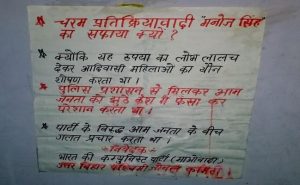 चरम प्रतिक्रियावादी "मनोज सिंह"
का सफाया क्यों?
★ क्योंकि यह रुपया का लोभ लालच
देकर आदिवासी महिलाओं का यौन
शोषण करता था।
★ पुलिस प्रशासन से मिलकर आम
जनता को झुठे केश में फंसा कर
परेशान करता था।
★ पार्टी के विरुद्ध आम जनता के बीच
गलत प्रचार करता था।
निवेदक:-
भारत की कम्युनिस्ट पार्टी (माओवादी)
उत्तर बिहार पश्चिमी जोनल कमिटी